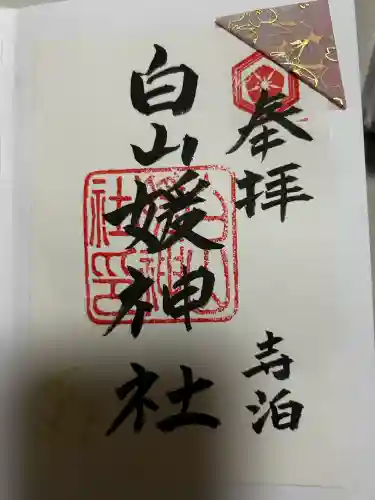 奉拝
寺泊
白山媛神社